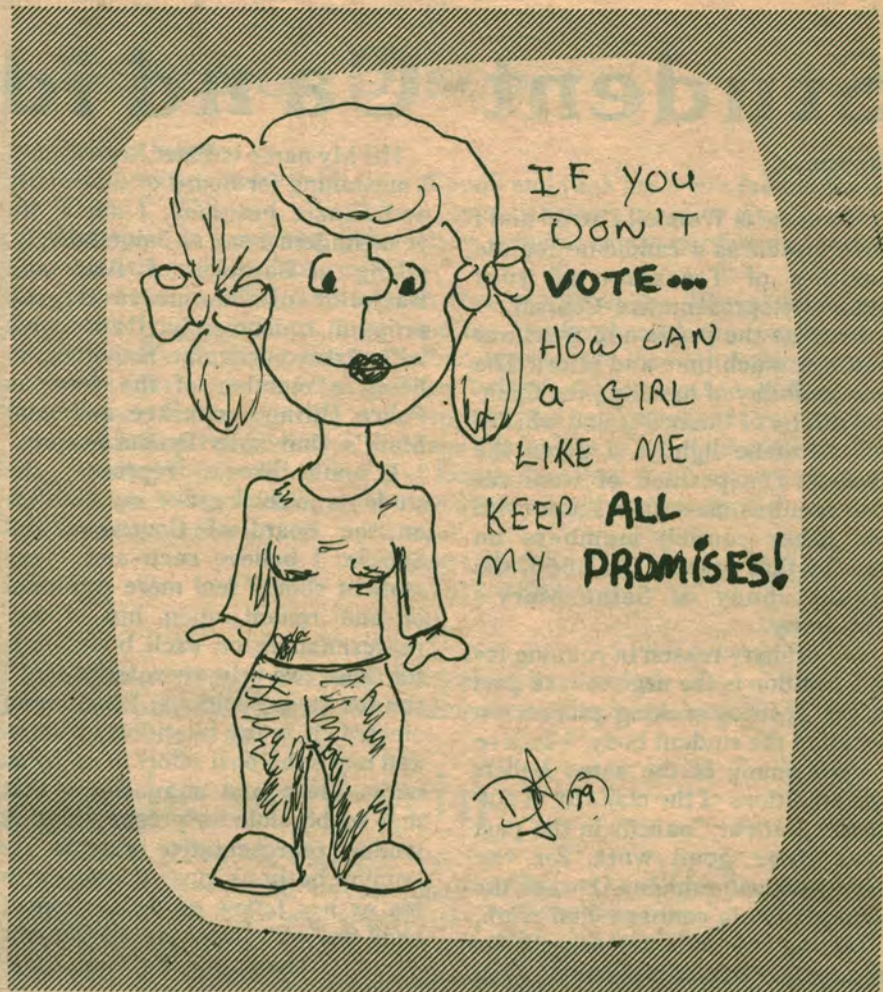 IF YOU
DON'T
VOTE...
HOW CAN
a GIRL
LIKE ME
KEEP ALL
MY PROMISES!
79